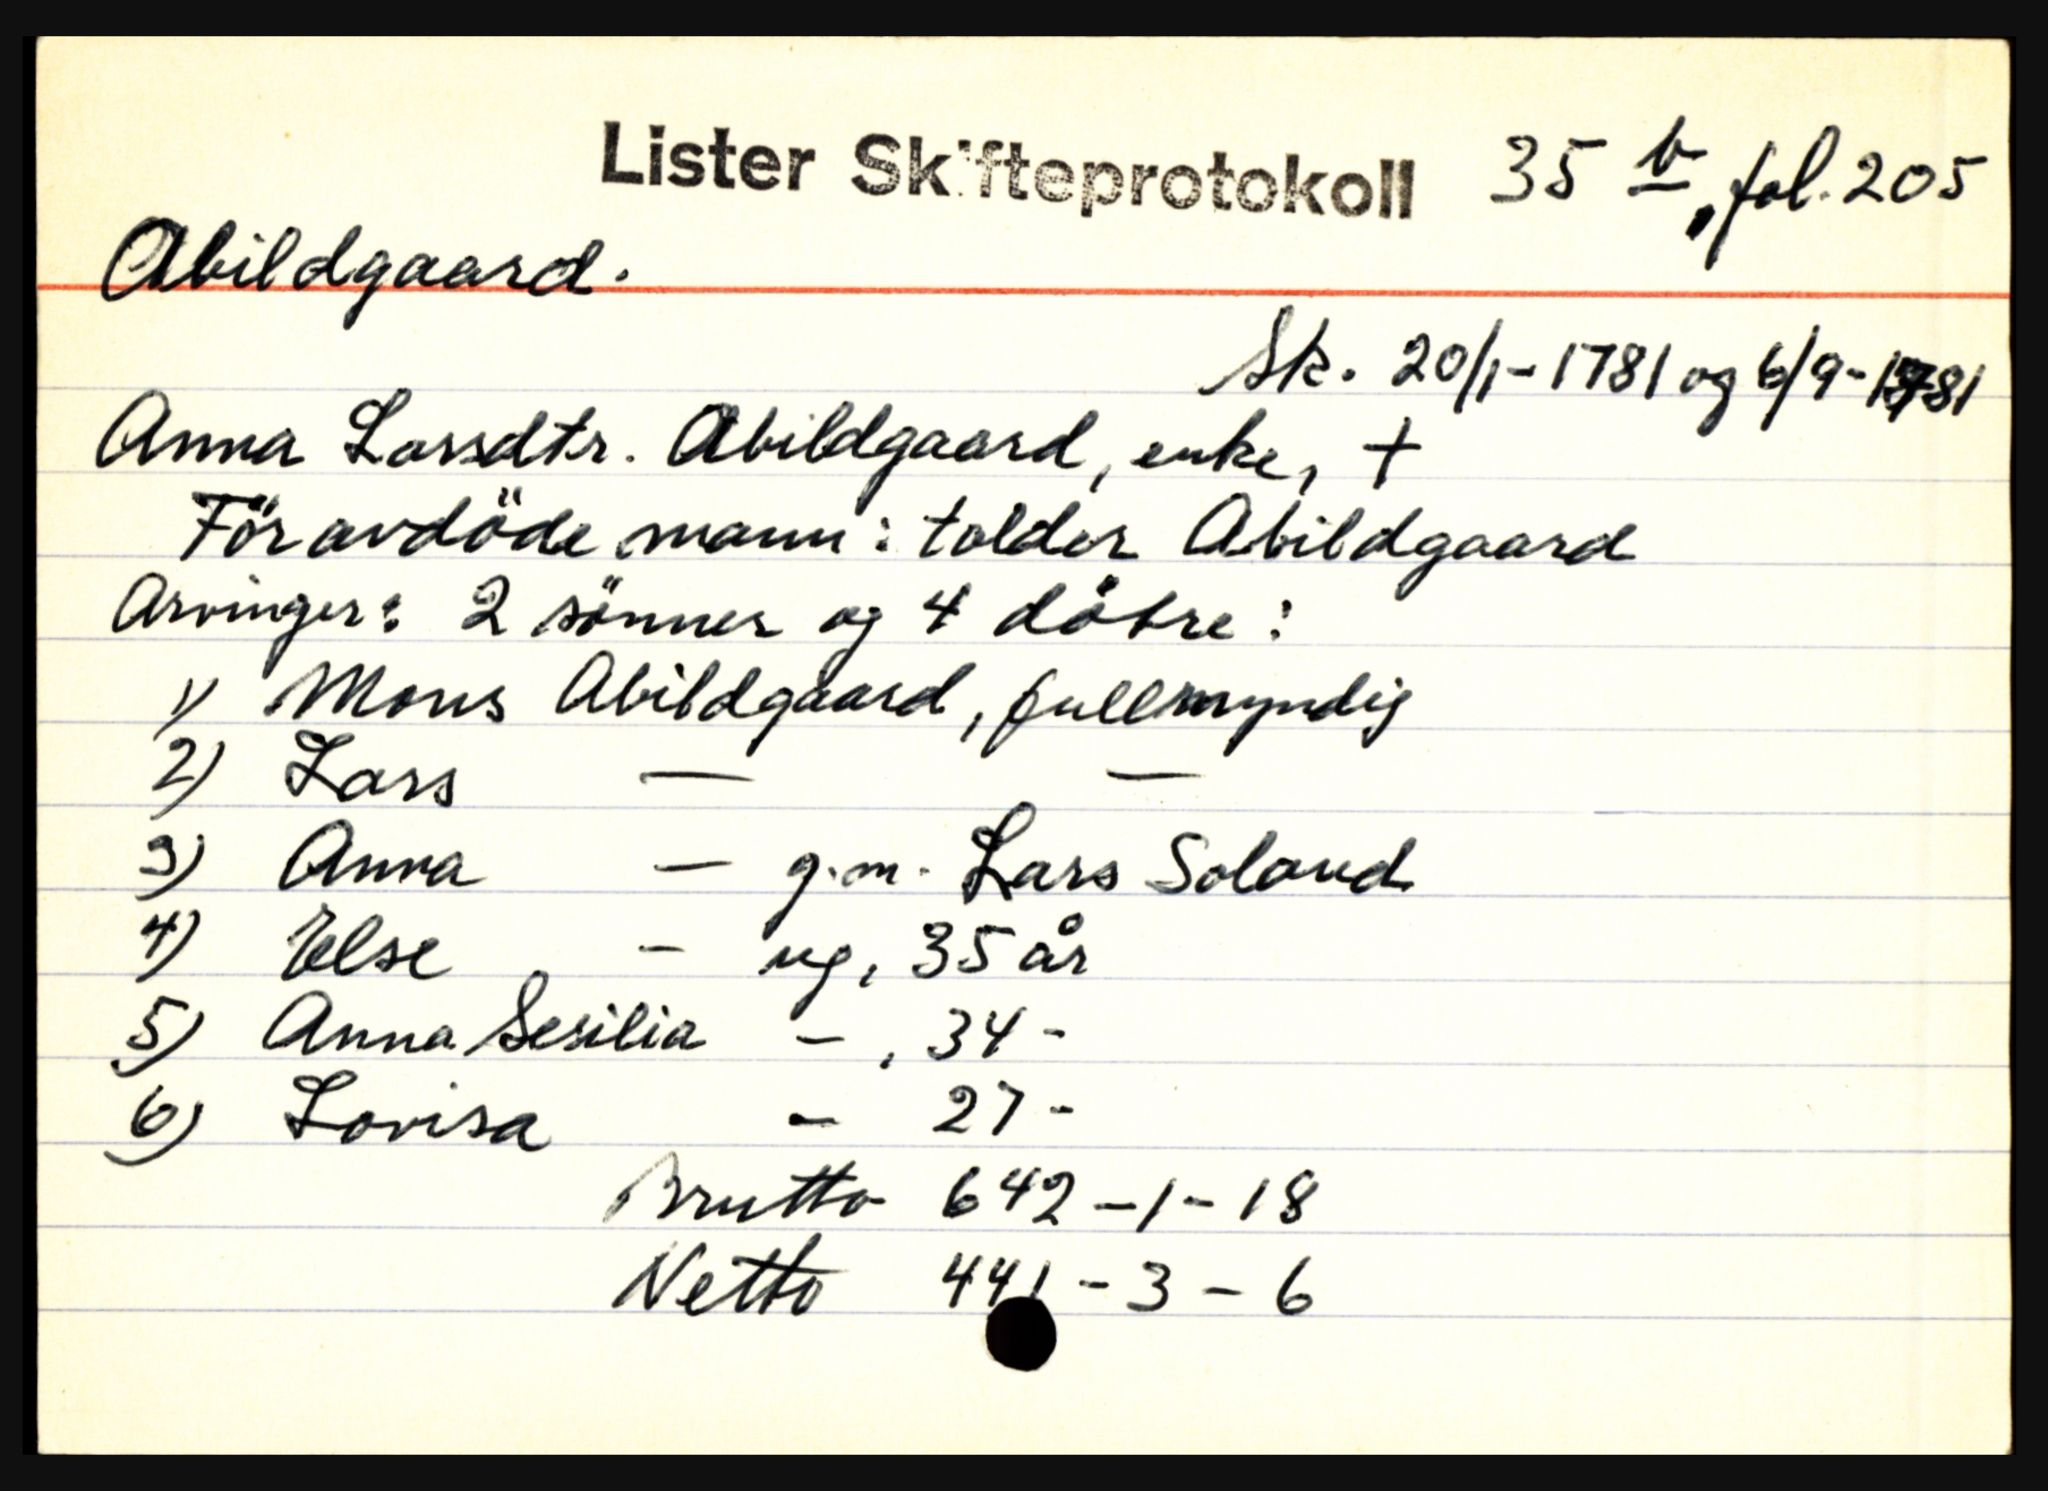 Lister Skifteprotokoll 35 b, fol. 205
Abildgaard.
Sk. 20/1-1781 og 6/9-1781
Anna Larsdtr. Abildgaard, enke, +
För avdöde mann: tolder Abildgaard
Arvinger: 2 sönner og 4 döbre:
1) Mons Abildgaard, fullmyndig
2) Lars — —
3) Anna — g.m. Lars Soland
4) Else - ug, 35 år
5) Anna Sesilia - , 34 -
6) Lovisa - 27 -
Brutto 642-1-18
Netto 441-3-6